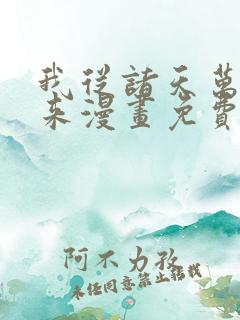 我從諸天萬
來漫畫免費
阿不力孜
未经同意禁止搭载